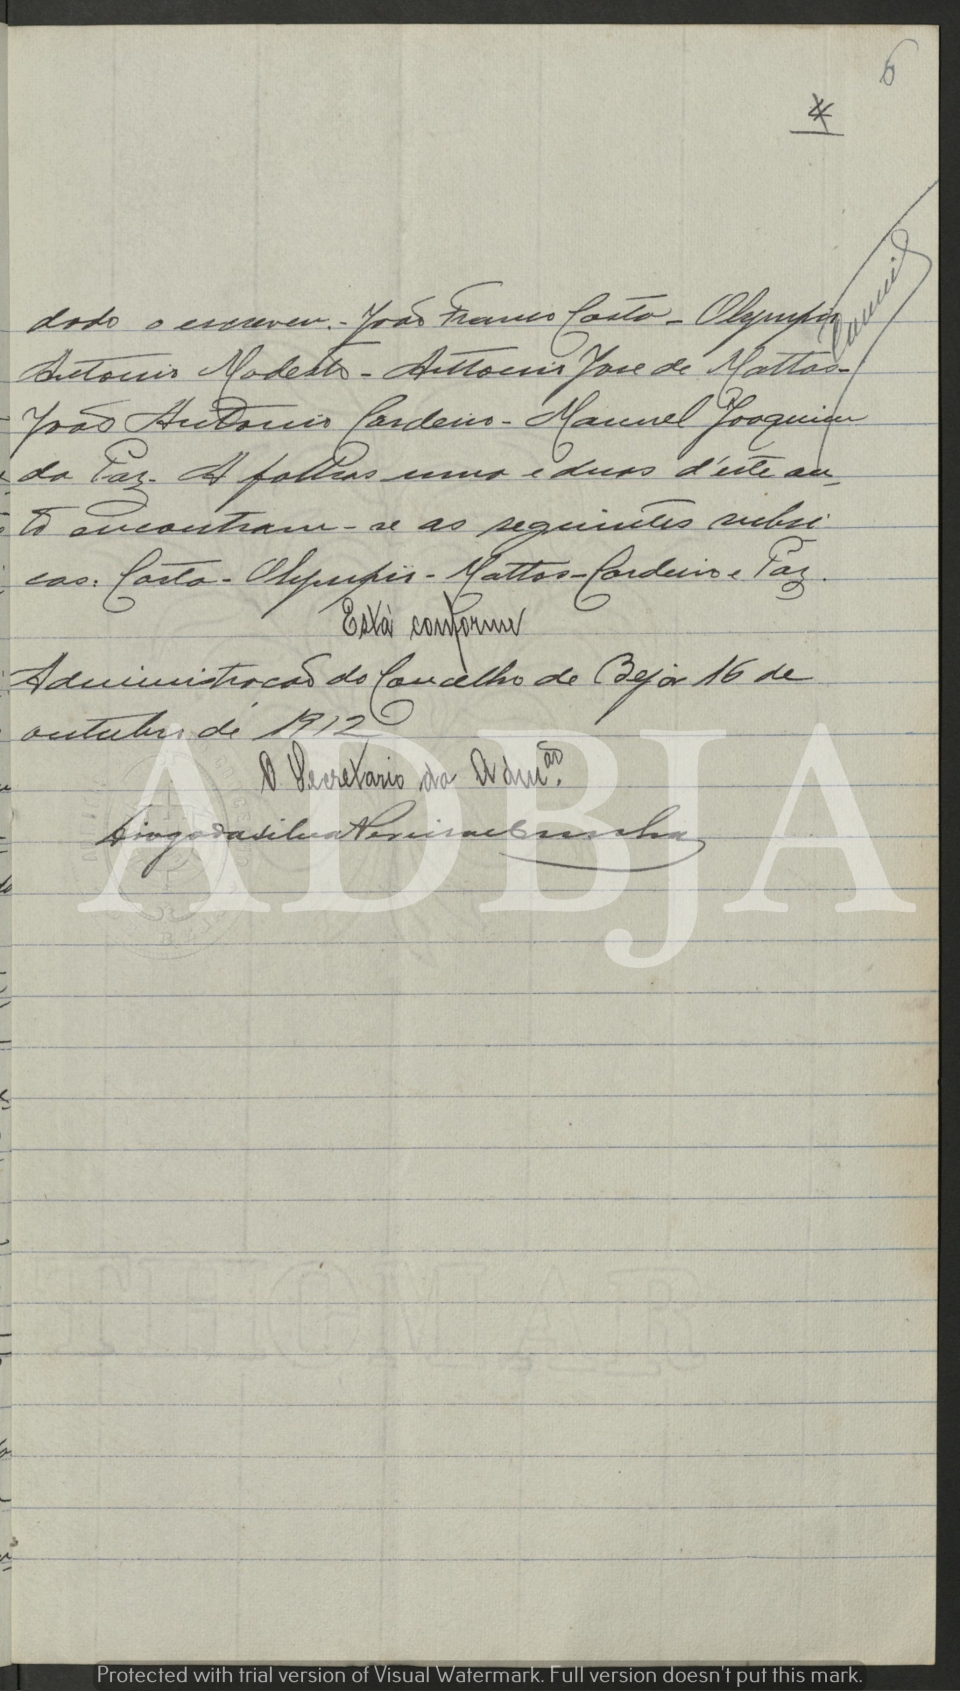 6
4
dado o escreveu.- João Franco Costa - Olympio
Antonio Modesto - Antonio Jose de Mattos -
João Antonio Cordeiro - Manuel Joaquim
da Paz. A folhas uma e duas d'este au-
to encontram-se as seguintes rubri
cas: Costa - Olympio - Mattos - Cordeiro e Paz.
Está conforme
Administração do Concelho de Beja 16 de
outubro de 1912
O Secretario da Adm.ão
Diogo da Silva
ADBJA
Protected with trial version of Visual Watermark. Full version doesn't put this mark.